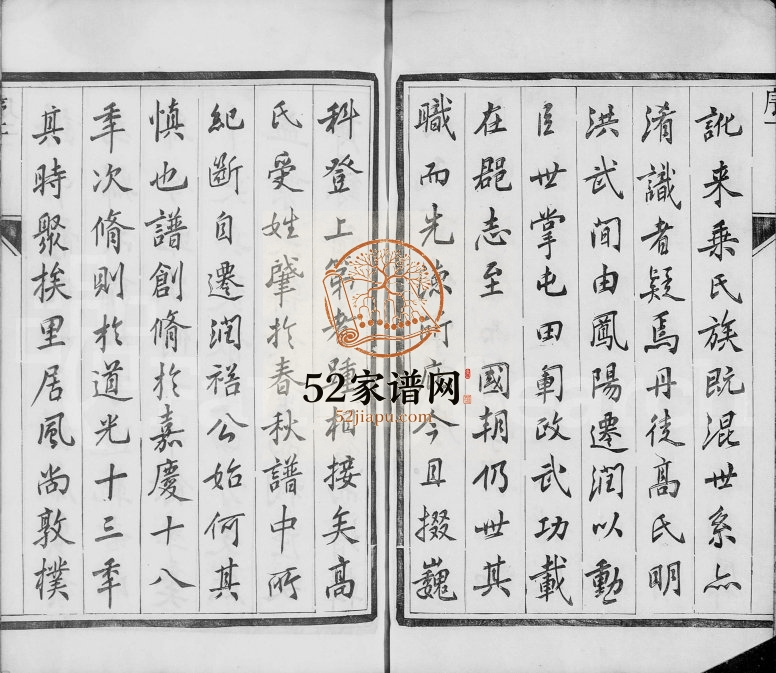 訛来乗氏族既混世系亦
淆識者疑焉丹徒髙氏明
洪武间由鳳陽遷润以勳
臣世掌屯田軍政武功載
在郡志至 國朝仍世其
職而先 今且掇巍
科登上第者踵相接矣髙
氏受姓肇扵春秋譜中所
紀断自遷润裕公始何其
慎也譜創脩扵嘉慶十八
秊次脩則扵道光十三秊
其時聚族里居風尚敦樸
52家谱网
52jiapu.com